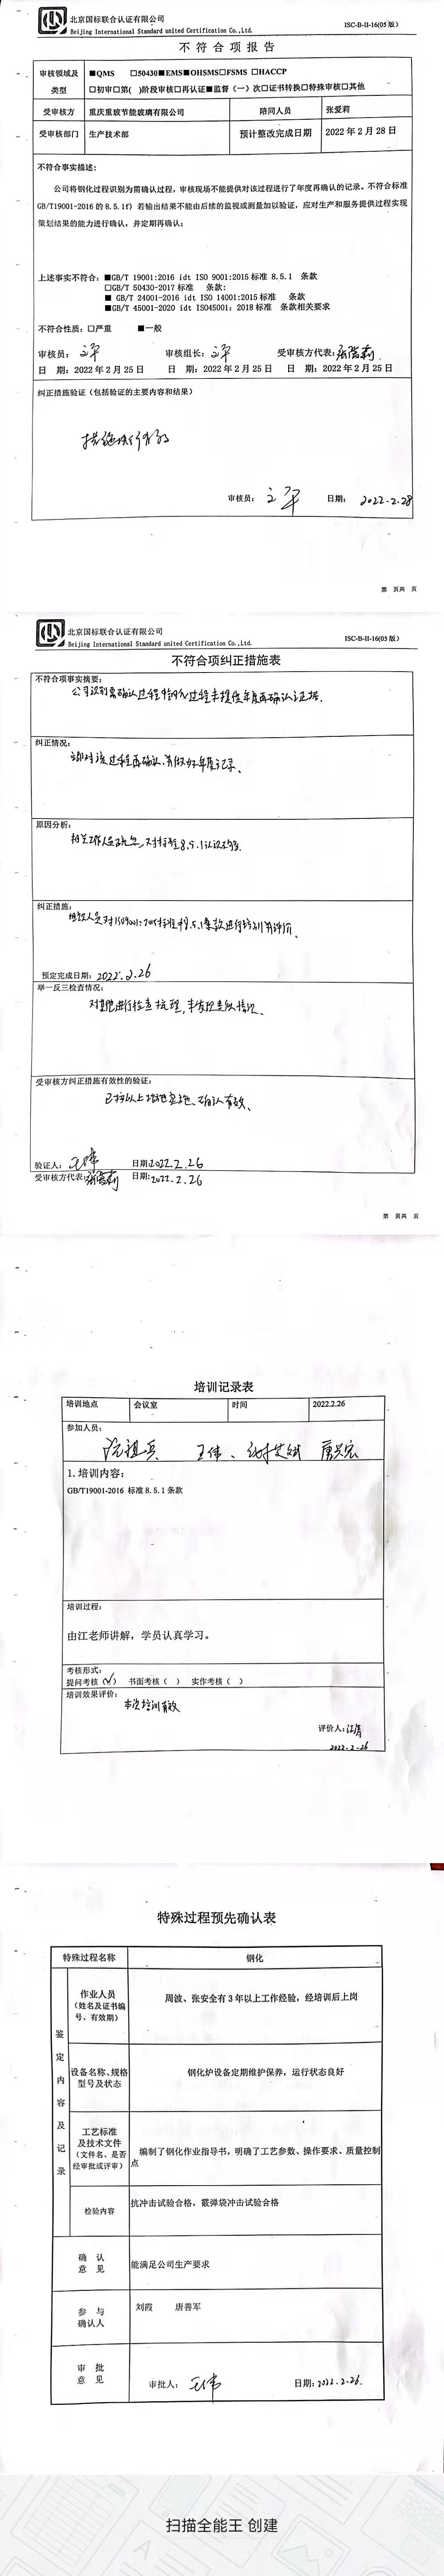 北京国标联合认证有限公司
Beijing International Standard united Certification Co.,Ltd.
ISC-B-II-16(05版)
不符合项报告
审核领域及类型
■QMS □50430■EMS■OHSMS□FSMS □HACCP
□初审□第( )阶段审核□再认证■监督(一)次□证书转换□特殊审核□其他
受审核方 重庆重玻节能玻璃有限公司 陪同人员 张爱莉
受审核部门 生产技术部 预计整改完成日期 2022年2月28日
不符合事实描述:
公司将钢化过程识别为需确认过程,审核现场不能提供对该过程进行了年度再确认的记录。不符合标准
GB/T19001-2016的8.5.1f)若输出结果不能由后续的监视或测量加以验证,应对生产和服务提供过程实现
策划结果的能力进行确认,并定期再确认;
上述事实不符合:■GB/T 19001:2016 idt ISO 9001:2015标准 8.5.1 条款
□GB/T 50430-2017标准 条款:
■ GB/T 24001-2016 idt ISO 14001:2015标准 条款
■GB/T 45001-2020 idt ISO45001:2018标准 条款相关要求
不符合性质:□严重 ■一般
审核员: 审核组长: 受审核方代表:张爱莉
日 期:2022年2月25日 日 期:2022年2月25日 日 期:2022年2月25日
纠正措施验证(包括验证的主要内容和结果)
审核员: 日期: 2022.2.28
第 页共 页
北京国标联合认证有限公司
Beijing International Standard united Certification Co.,Ltd.
ISC-B-II-16(05版)
不符合项纠正措施表
不符合项事实摘要:
公司识别需确认过程钢化过程未提供年度再确认证据.
纠正情况:
立即对该过程再确认,并做好年度记录、
原因分析:
相关工作人员疏忽,对标准8.5.1认识不够.
纠正措施:
组织人员对ISO9001:2015标准中8.5.1条款进行培训并评价、
预定完成日期:2022.2.26
举一反三检查情况:
对其他进行检查梳理,未发现类似情况、
受审核方纠正措施有效性的验证:
已按以上措施实施、确认有效、
验证人:王伟 日期:2022.2.26
受审核方代表:张爱莉 日期:2022.2.26
第 页共 页
培训记录表
培训地点 会议室 时间 2022.2.26
参加人员:
王伟、
1.培训内容:
GB/T19001-2016 标准8.5.1条款
培训过程:
由江老师讲解,学员认真学习。
考核形式:
提问考核(√) 书面考核( ) 实作考核( )
培训效果评价:
本次培训有效
评价人:
2022.2.26
特殊过程预先确认表
特殊过程名称 钢化
鉴定内容及记录
作业人员
(姓名及证书编号、有效期)
周波、张安全有3年以上工作经验,经培训后上岗
设备名称、规格型号及状态
钢化炉设备定期维护保养,运行状态良好
工艺标准及技术文件
(文件名、是否经审批或评审)
编制了钢化作业指导书,明确了工艺参数、操作要求、质量控制点
检验内容
抗冲击试验合格,霰弹袋冲击试验合格
确认意见
能满足公司生产要求
参与确认人
刘霞 唐善军
审批意见
审批人:王伟 日期:2022.2.26.
扫描全能王 创建